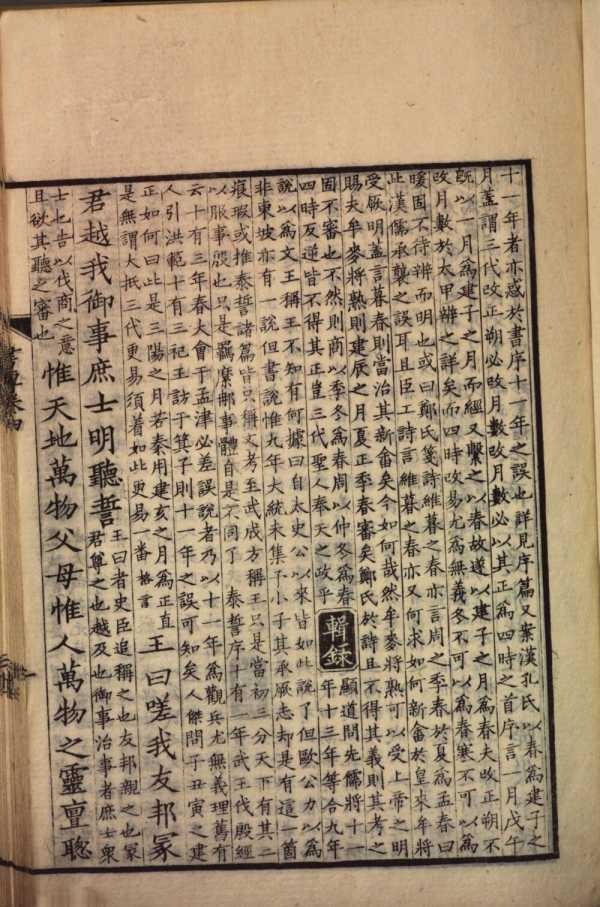 十一年者亦惑於書序十一年之誤也詳見序篇又案漢孔氏以春爲建子之
月蓋謂三代改正朔必改月數改月數必以其正爲四時之首序言一月戊午
旣以一月爲建子之月而經又繫之以春故遂以建子之月爲春夫改正朔不
改月數於太甲辨之詳矣而四時改易尤爲無義冬不可以爲春寒不可以爲
暖固不待辨而明也或曰鄭氏箋詩維暮之春亦言周之季春於夏爲孟春曰
此漢儒承襲之誤耳且臣工詩言維暮之春亦又何求如何新畬於皇來牟將
受厥明蓋言暮春則當治其新畬矣今如何哉然牟麥將熟可以受上帝之明
賜夫牟麥將熟則建辰之月夏正季春審矣鄭氏於詩且不得其義則其考之
固不審也不然則商以季冬爲春周以仲冬爲春
四時反逆皆不得其正豈三代聖人奉天之政乎
輯錄
顯道問先儒將十一
年十三年等合九年
說以爲文王稱王不知有何據曰自太史公以來皆如此說了但歐公力以爲
非東坡亦有一說但書說惟九年大統未集予小子其承厥志却是有這一箇
痕瑕或推泰誓諸篇皆只稱文考至武成方稱王只是當初三分天下有其二
以服事殷也只是羈縻那事體自是不同了 泰誓序十有一年武王伐殷經
云十有三年春大會于孟津必差誤說者乃以十一年爲觀兵尤無義理舊有
人引洪範十有三祀王訪于箕子則十一年之誤可知矣人傑問子丑寅之建
正如何曰此是三陽之月若秦用建亥之月爲正直
是無謂大抵三代更易須着如此更易一番 格言
王曰嗟我友邦冢
君越我御事庶士明聽誓
王曰者史臣追稱之也友邦親之也冢
君尊之也越及也御事治事者庶士衆
士也告以伐商之意
且欲其聽之審也
惟天地萬物父母惟人萬物之靈亶聰